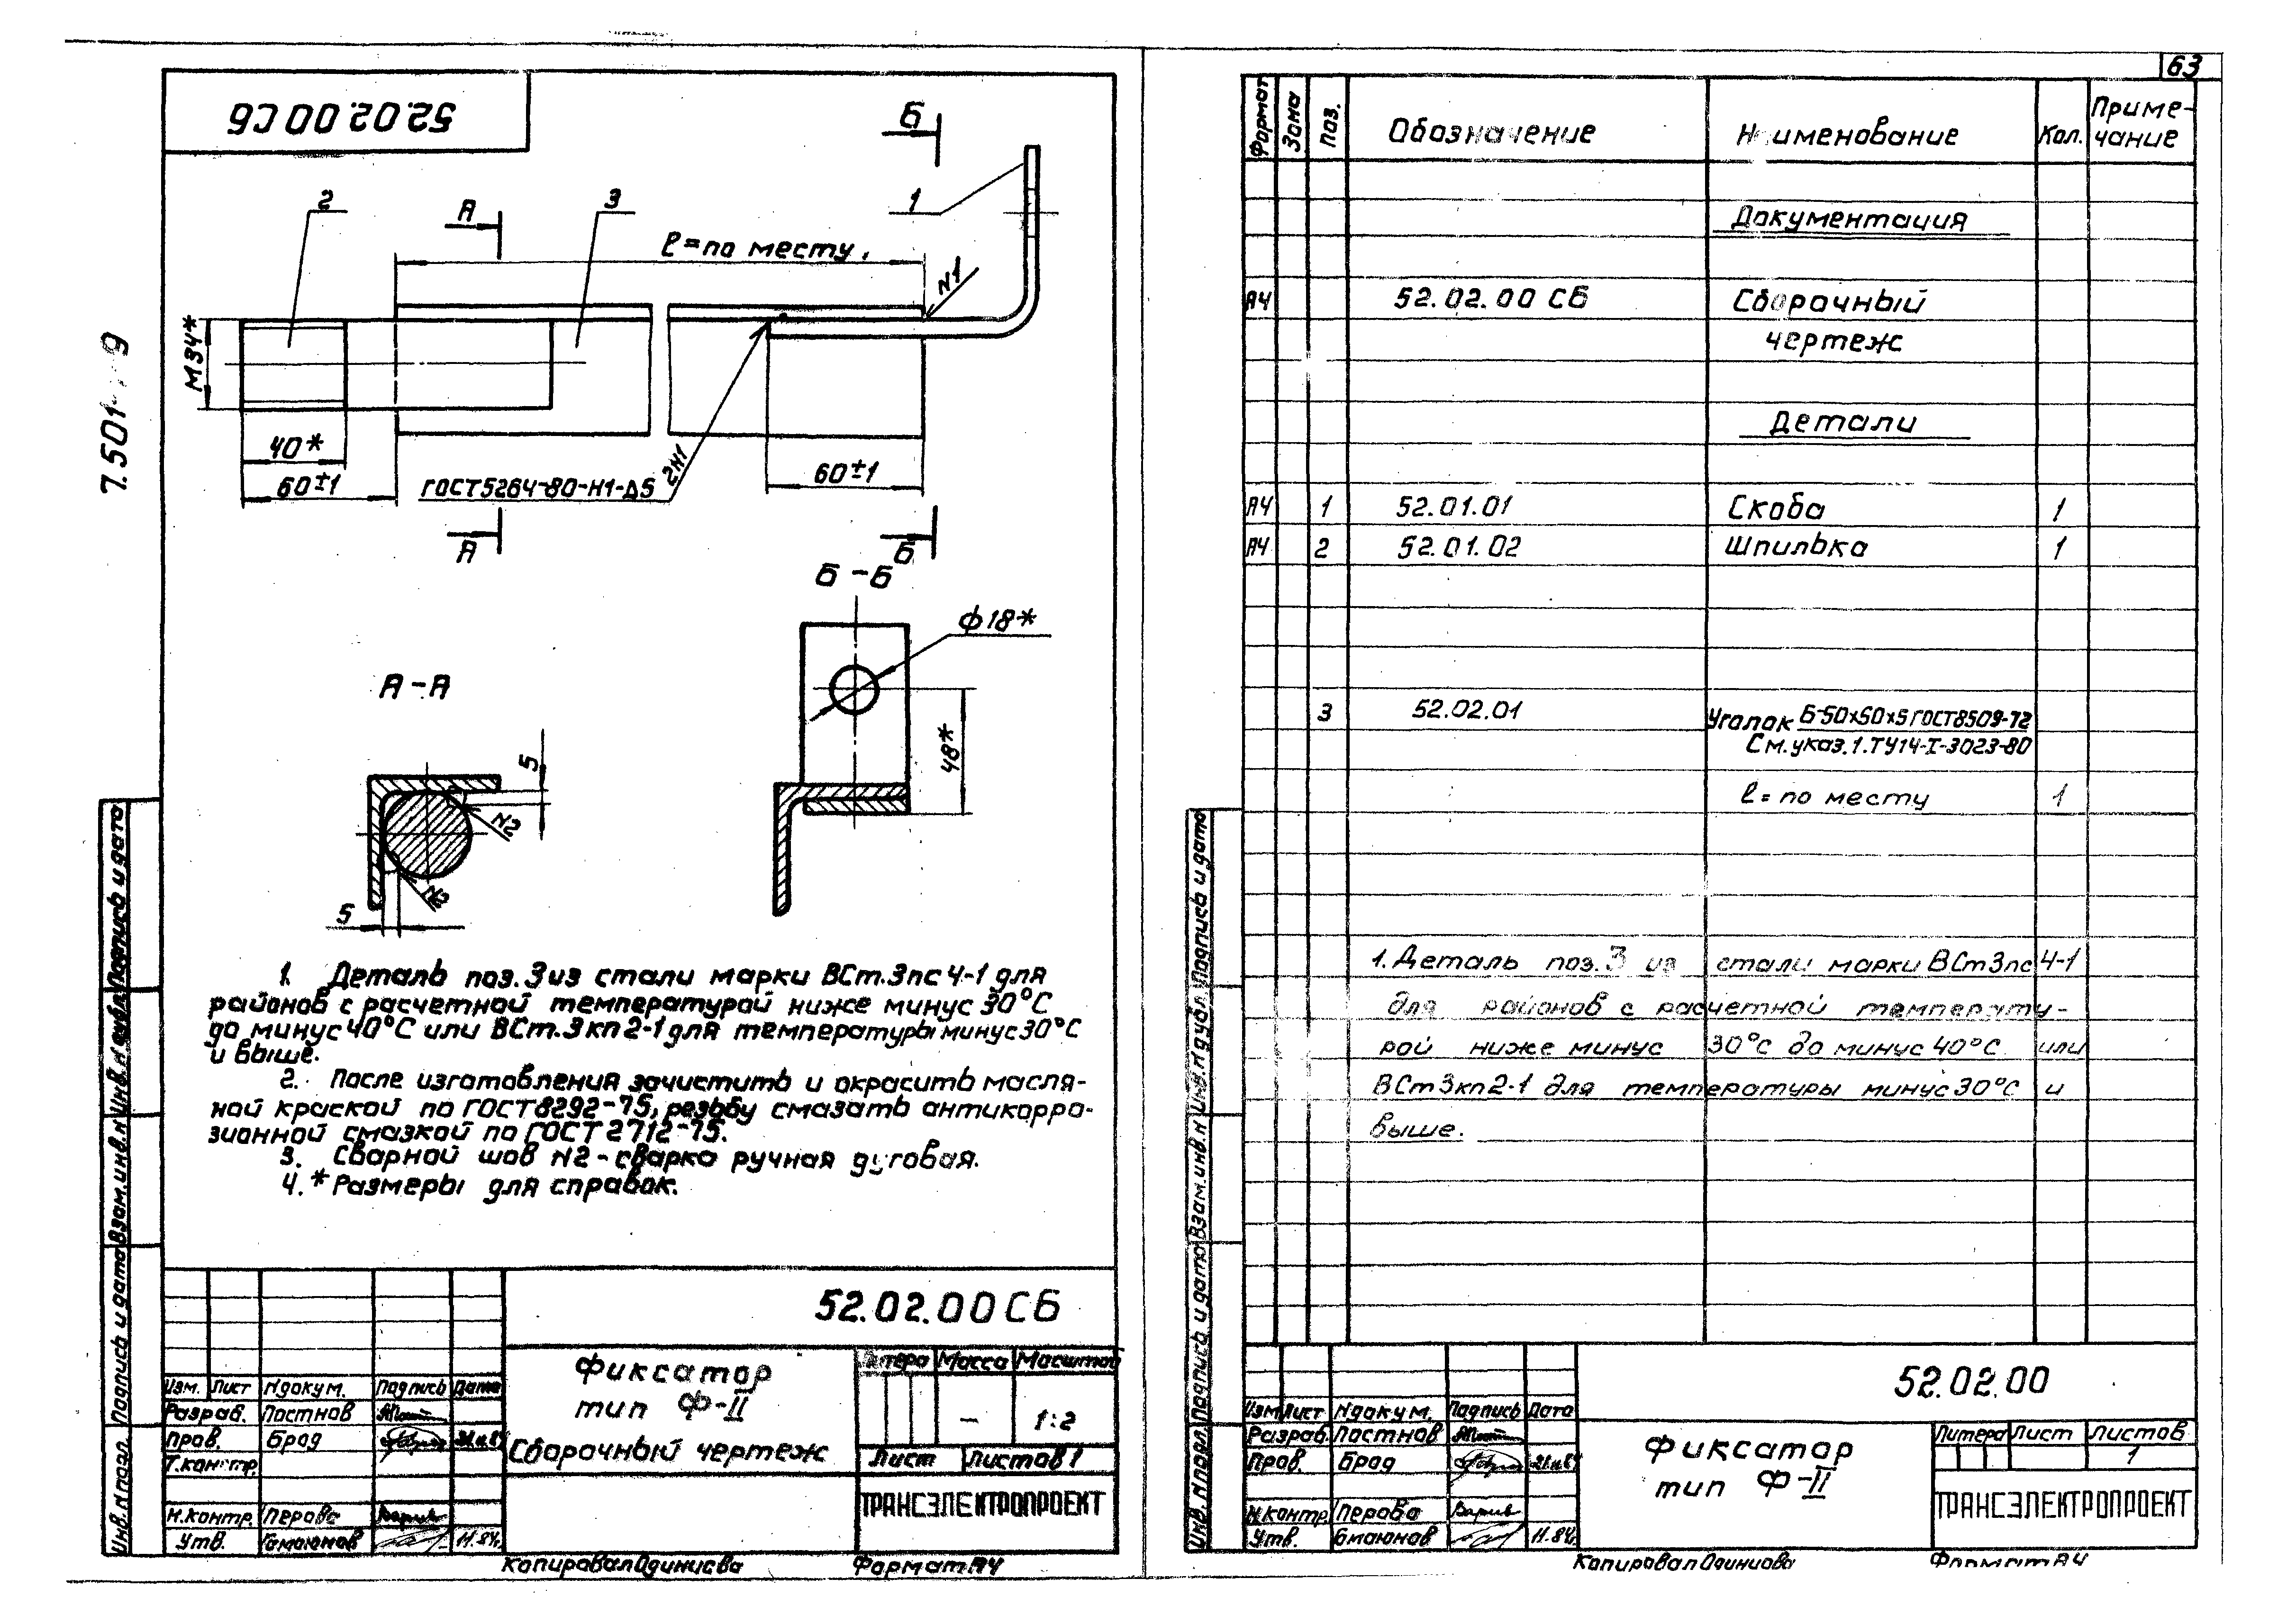 52.02.00 СБ
Б
1
2
А
3
ℓ=по месту
N1
М34*
40*
60±1
ГОСТ5264-80-Н1-Δ5
2N1
60±1
А
Б
Б-Б
ф18*
48*
А-А
5
N2
N2
5
1. Деталь поз. 3 из стали марки ВСт.3пс4-1 для
районов с расчетной температурой ниже минус 30°С
до минус 40°С или ВСт.3кп2-1 для температуры минус 30°С
и выше.
2. После изготовления зачистить и окрасить масля-
ной краской по ГОСТ 8292-75, резьбу смазать антикорро-
зионной смазкой по ГОСТ 2712-75.
3. Сварной шов N2 - сварка ручная дуговая.
4.* Размеры для справок.
52.02.00 СБ
Фиксатор
тип Ф-II
Сборочный чертеж
Литера Масса Масштаб
– 1:2
Лист Листов 1
ТРАНСЭЛЕКТРОПРОЕКТ
Изм. Лист N докум. Подпись Дата
Разраб. Постнов
Пров. Брод
Т.контр.
Н.контр. Перова
Утв. 11.84
Копировал Одинцова Формат А4
Подпись и дата
Инв. N дубл.
Взам. инв. N
Подпись и дата
Инв. N подл.
63
Формат Зона Поз. Обозначение Наименование Кол. Приме-
чание
Документация
А4 52.02.00 СБ Сборочный
чертеж
Детали
А4 1 52.01.01 Скоба 1
А4 2 52.01.02 Шпилька 1
3 52.02.01 Уголок Б-50х50х5 ГОСТ8509-72
См.указ.1.ТУ14-I-3023-80
ℓ=по месту 1
1. Деталь поз. 3 из стали марки ВСт3пс4-1
для районов с расчетной температу-
рой ниже минус 30°С до минус 40°С или
ВСт3кп2-1 для температуры минус 30°С и
выше.
52.02.00
Фиксатор
тип Ф-II
Литера Лист Листов
1
ТРАНСЭЛЕКТРОПРОЕКТ
Изм Лист N докум. Подпись Дата
Разраб. Постнов
Пров. Брод
Н.контр. Перова
Утв. 11.84
Копировал Одинцова Формат А4
Подпись и дата
Инв. N дубл.
Взам. инв. N
Подпись и дата
Инв. N подл.